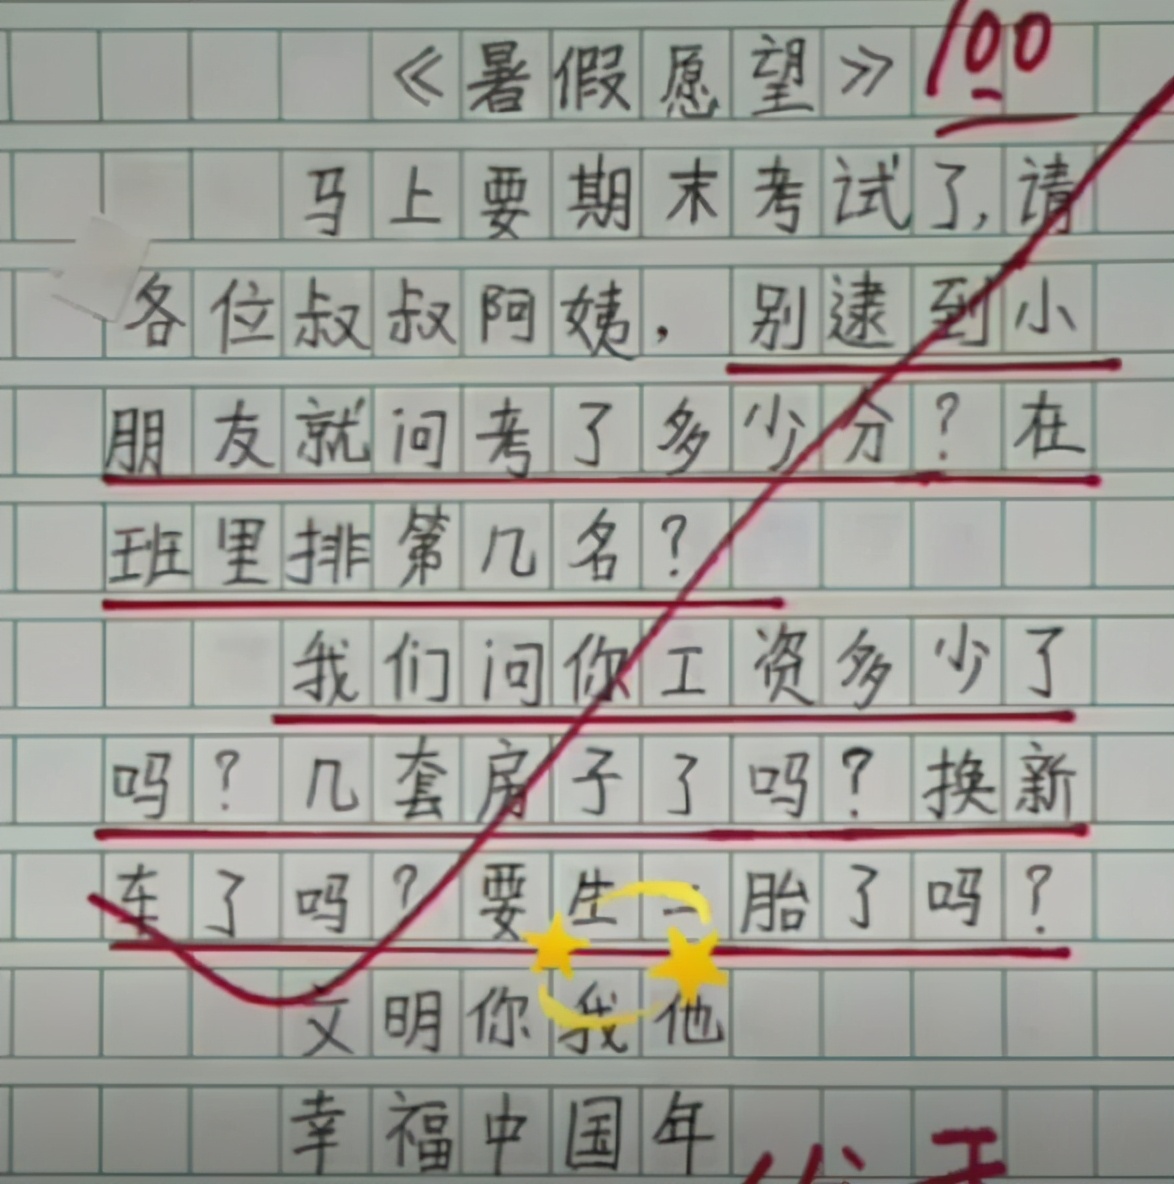 《暑假愿望》 100
马上要期末考试了,请
各位叔叔阿姨,别逮到小
朋友就问考了多少分?在
班里排第几名?
我们问你工资多少了
吗?几套房子了吗?换新
车了吗?要生二胎了吗?
文明你我他
幸福中国年